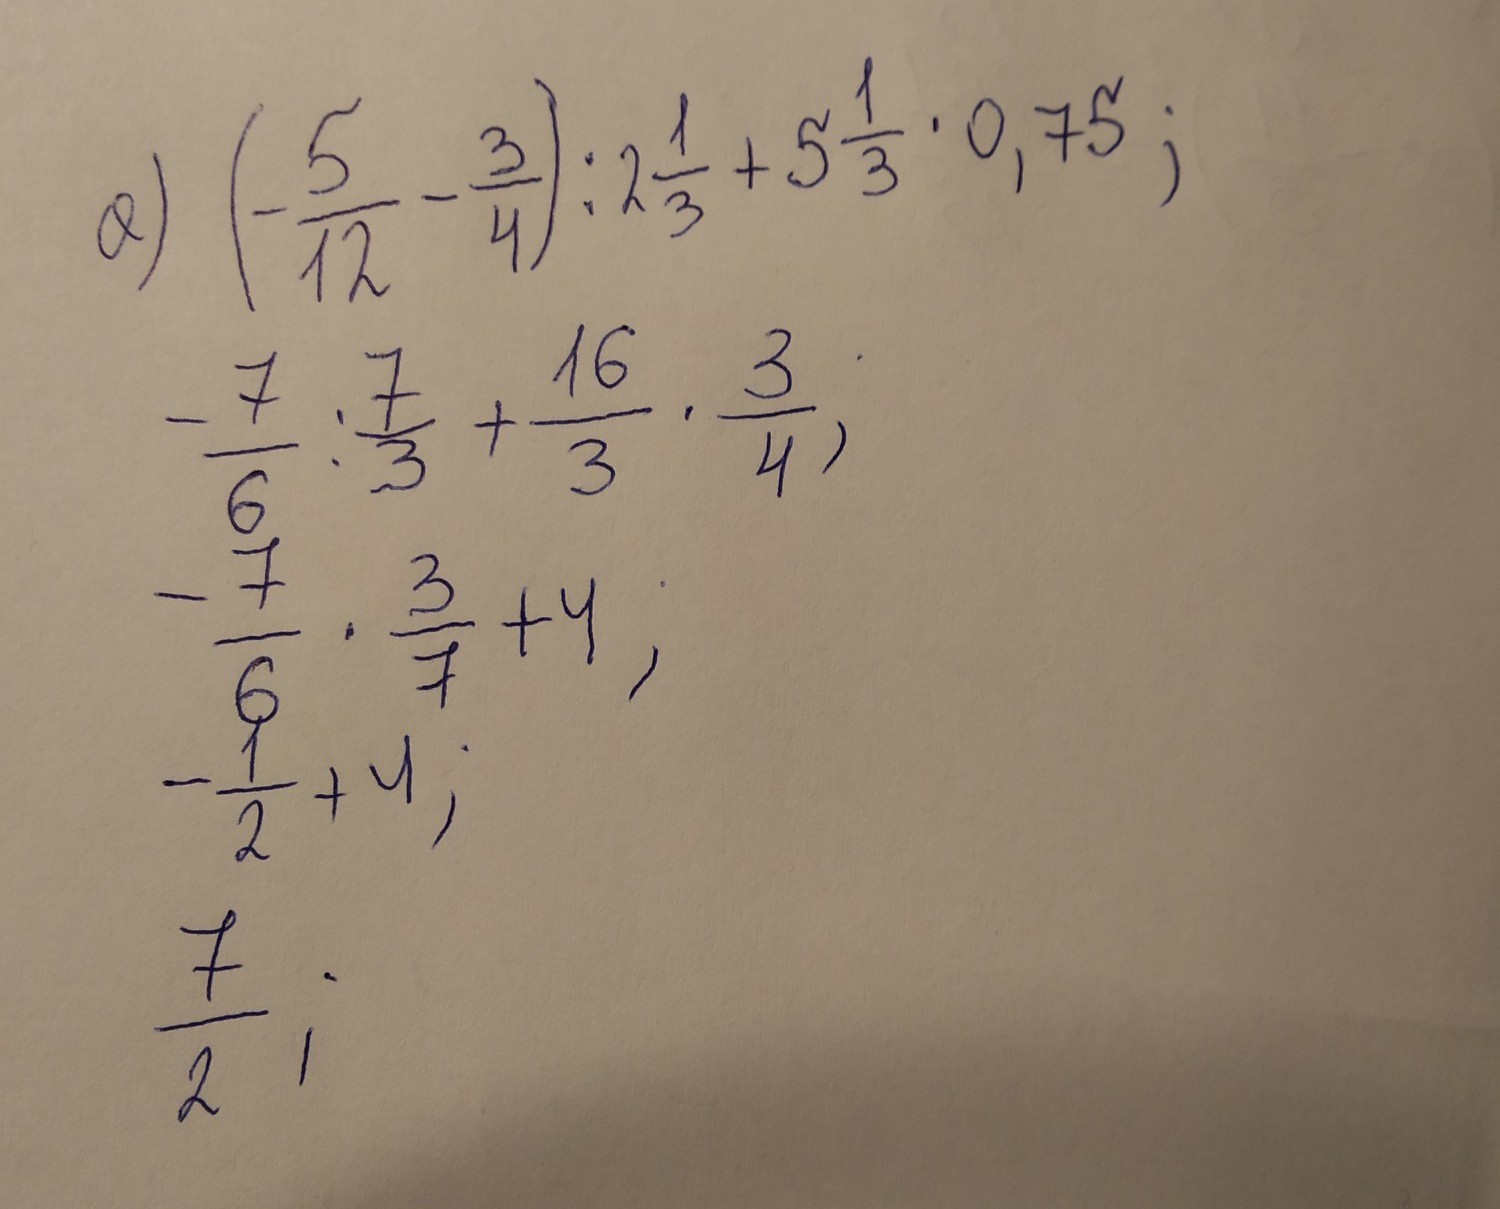 а) (-5/12 - 3/4) : 2 1/3 + 5 1/3 · 0,75;
-7/6 : 7/3 + 16/3 · 3/4;
-7/6 · 3/7 + 4;
-1/2 + 4;
7/2;